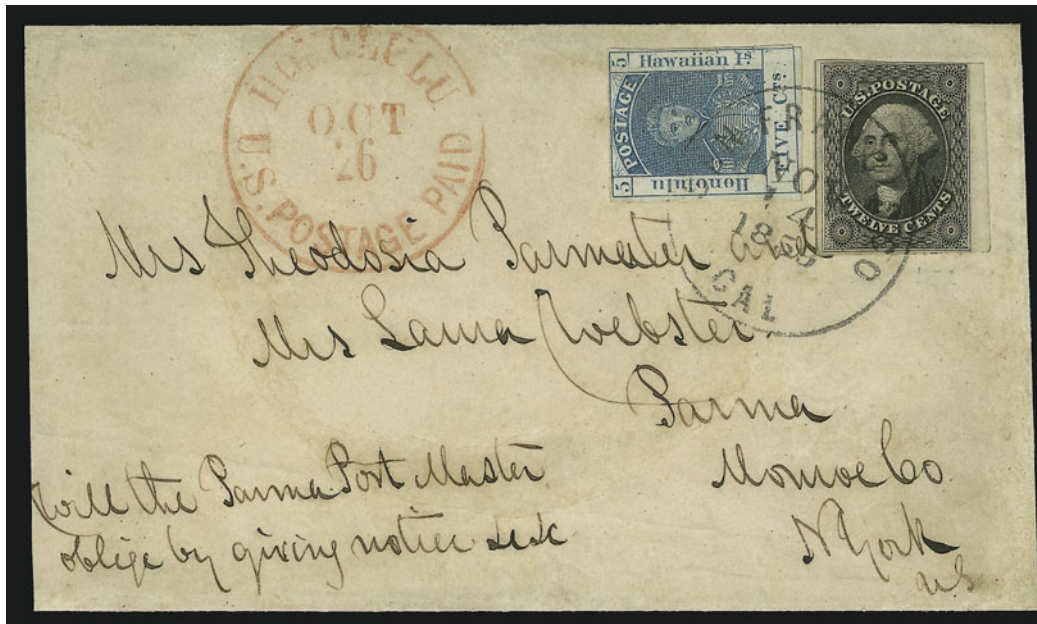 HONOLULU
OCT
26
U.S. POSTAGE PAID
5 Hawaiian Is. 
POSTAGE
FIVE Cts.
5 Honolulu
U.S. POSTAGE
TWELVE CENTS
SAN FRANCISCO
NOV
14
CAL
Mrs Theodosia Parmater and
Mrs Laura Webster
Parma
Monroe Co.
N York
U.S.
Will the Parma Post Master
oblige by giving notice